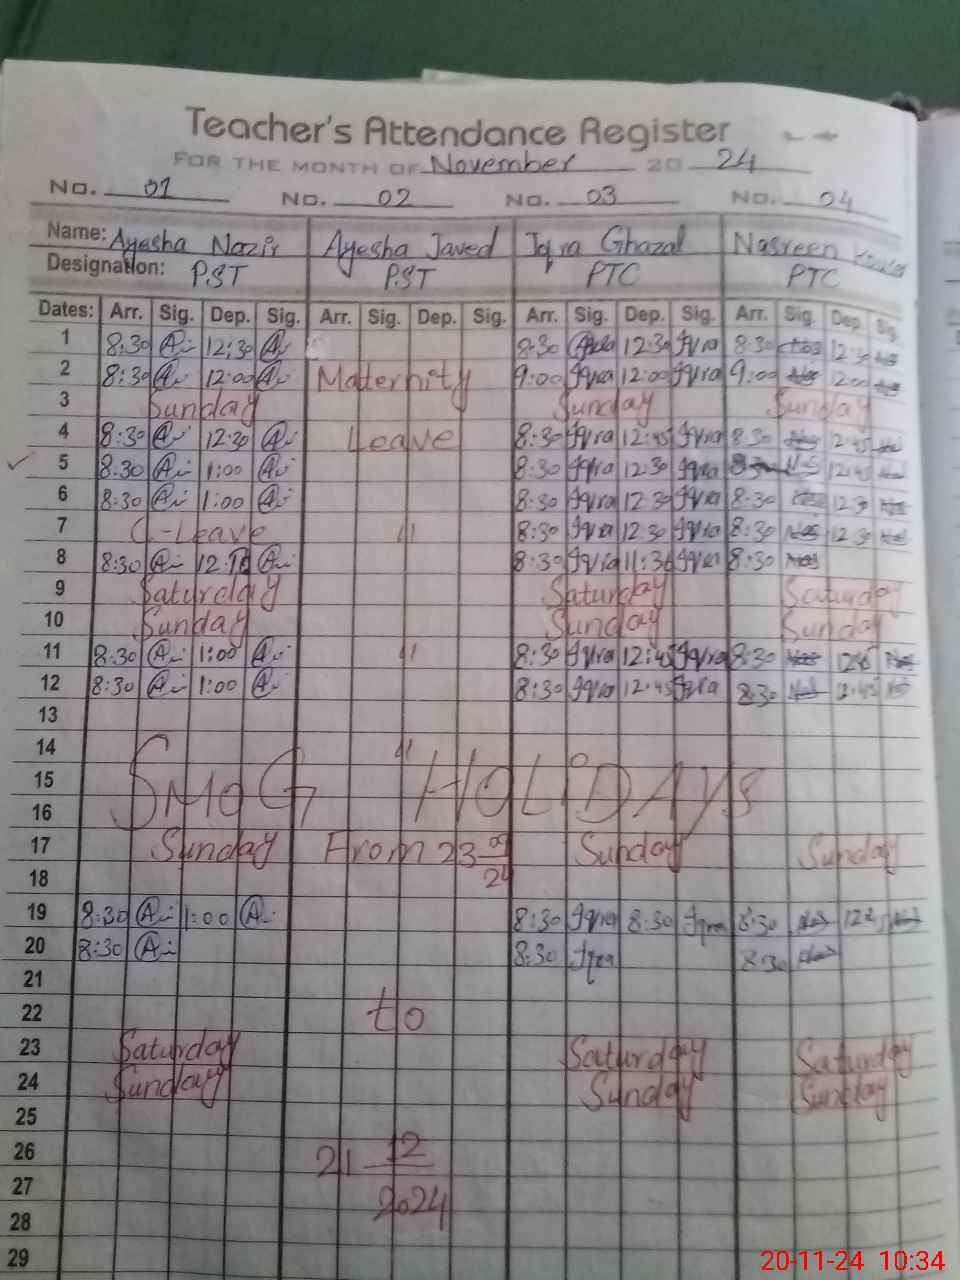 Teacher's Attendance Register
FOR THE MONTH OF November 20 24
No. 01 No. 02 No. 03 No. 04
Name: Ayesha Nazir Ayesha Javed Iqra Ghazal Nasreen
Designation: P.ST P.ST PTC PTC
Dates: Arr. Sig. Dep. Sig. Arr. Sig. Dep. Sig. Arr. Sig. Dep. Sig. Arr. Sig. Dep. Sig.
1 8:30 12:30 8:30 12:30 Iqra 8:30 12:30
2 8:30 12:00 Maternity 9:00 Iqra 12:00 Iqra 9:00 12:00
3 Sunday Sunday Sunday
4 8:30 12:30 Leave 8:30 Iqra 12:45 Iqra 8:30 12:45
5 8:30 1:00 8:30 Iqra 12:30 Iqra 12:45
6 8:30 1:00 8:30 Iqra 12:30 Iqra 8:30 12:30
7 C-Leave " 8:30 Iqra 12:30 Iqra 8:30 12:30
8 8:30 8:30 Iqra 11:36 Iqra 8:30
9 Saturday Saturday Saturday
10 Sunday Sunday Sunday
11 8:30 1:00 " 8:30 Iqra 12:45 Iqra 8:30
12 8:30 1:00 8:30 Iqra 12:45 Iqra 8:30 12:45
13
14 "
15 SMOG HOLIDAYS
16
17 Sunday From 23 Sunday Sunday
18 24
19 8:30 1:00 8:30 Iqra 8:30 Iqra 8:30
20 8:30 8:30 Iqra 8:30
21
22 to
23 Saturday Saturday Saturday
24 Sunday Sunday Sunday
25
26 21 12
27 2024
28
29
20-11-24 10:34